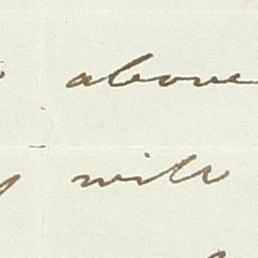 above
will